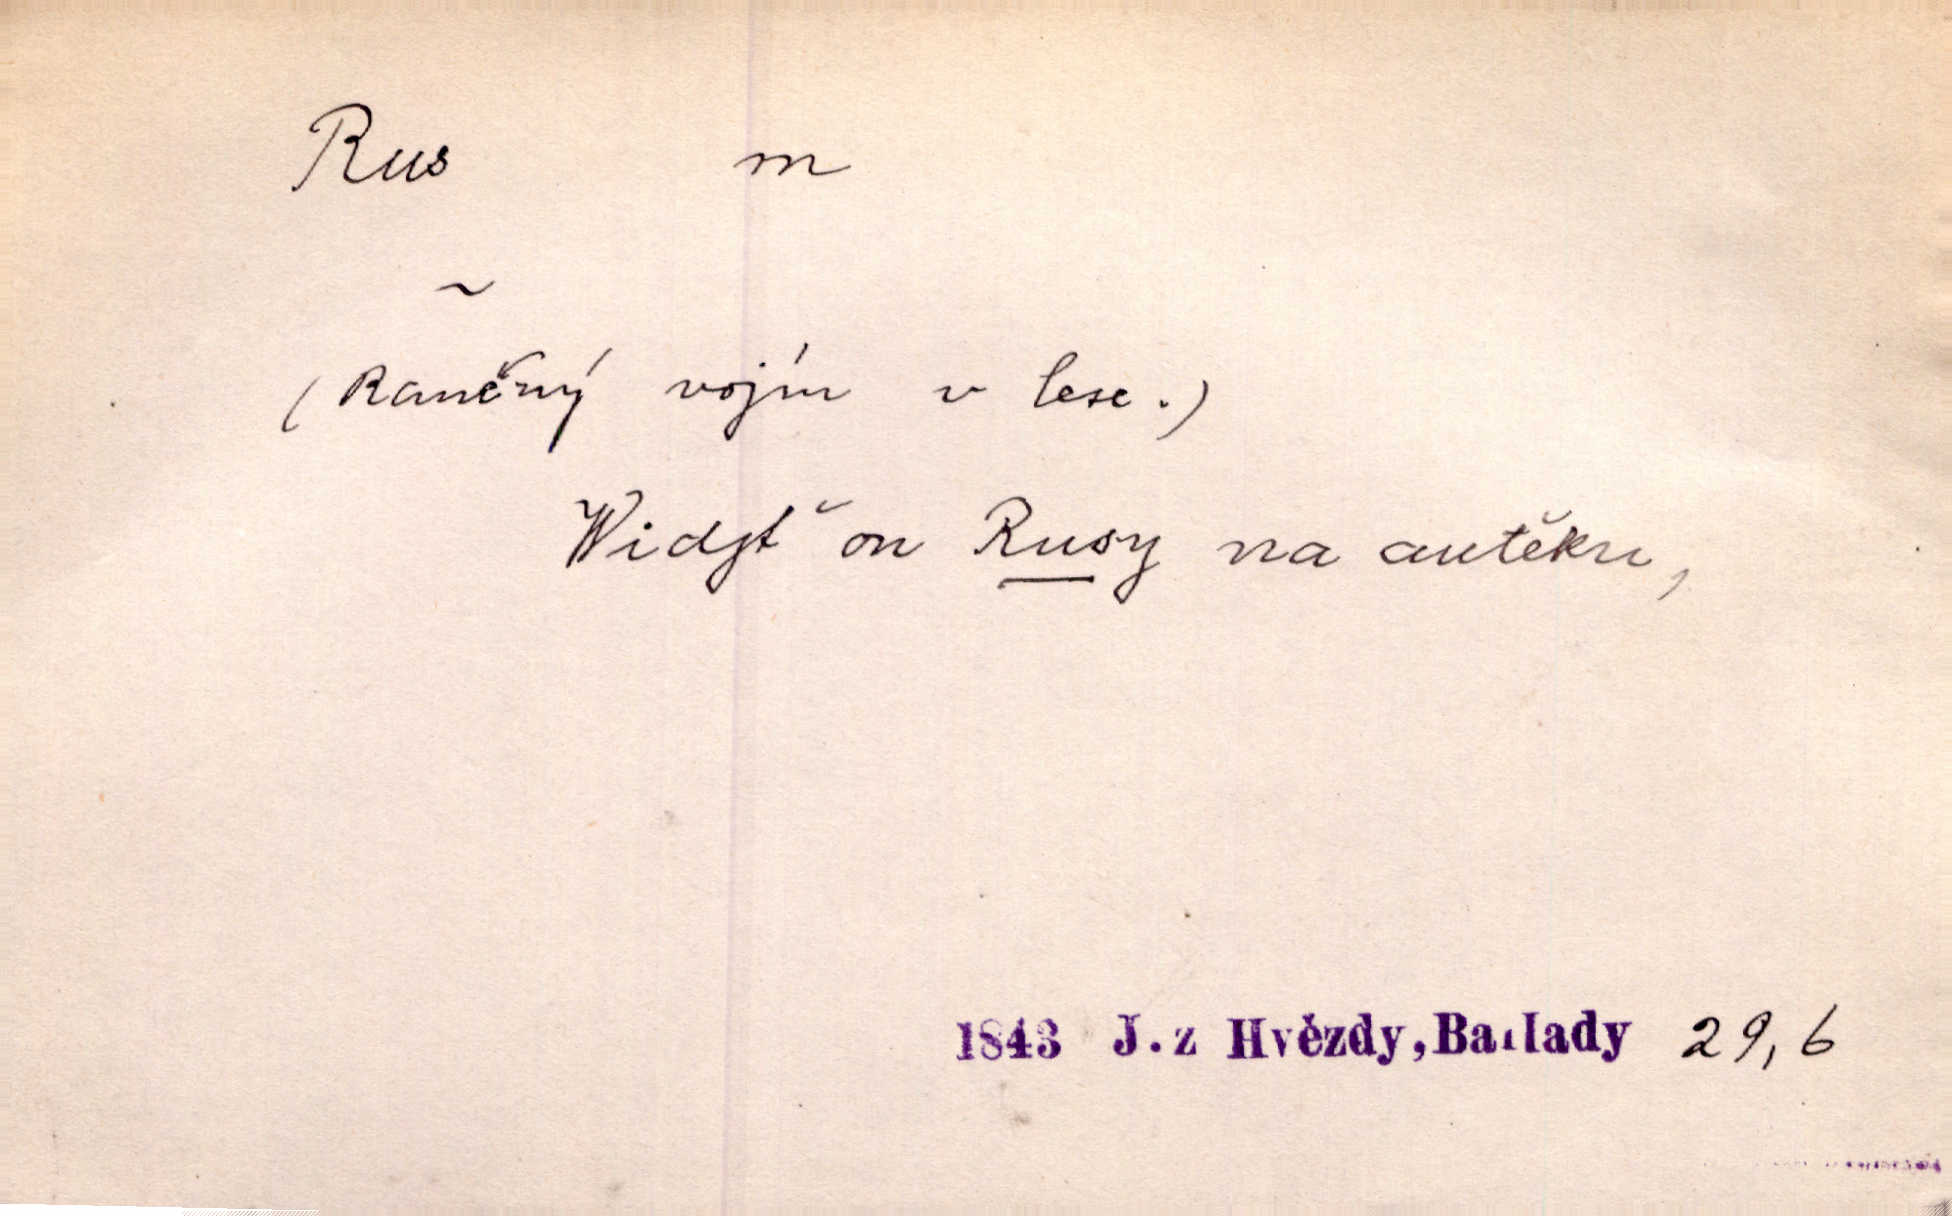 Rus m
~
(Raněný vojín v lese.)
Widjť on Rusy na autěku,
1843 J. z Hvězdy, Ballady 29, 6